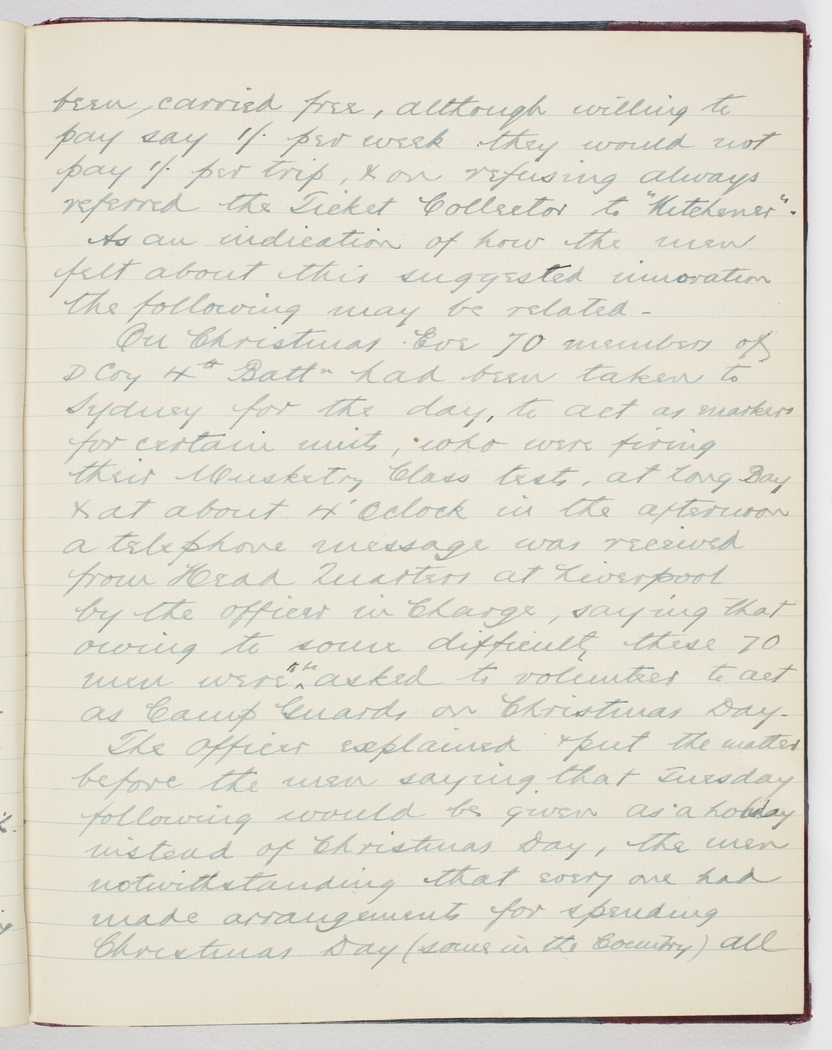 been carried free, although willing to
pay say 1/- per week they would not
pay 1/- per trip, & on refusing always
referred the Ticket Collector to "Kitchener".
As an indication of how the men
felt about this suggested innovation
the following may be related -
On Christmas Eve 70 members of
D Coy 4th Battn had been taken to
Sydney for the day, to act as markers
for certain units, who were firing
their Musketry Class tests, at Long Bay
& at about 4 Oclock in the afternoon
a telephone message was received
from Head Quarters at Liverpool
by the officer in Charge, saying that
owing to some difficulty these 70
men were to be asked to volunteer to act
as Camp Guards on Christmas Day.
The officer explained & put the matter
before the men saying that Tuesday
following would be given as a holiday
instead of Christmas Day, the men
notwithstanding that every one had
made arrangements for spending
Christmas Day (some in the Country) all